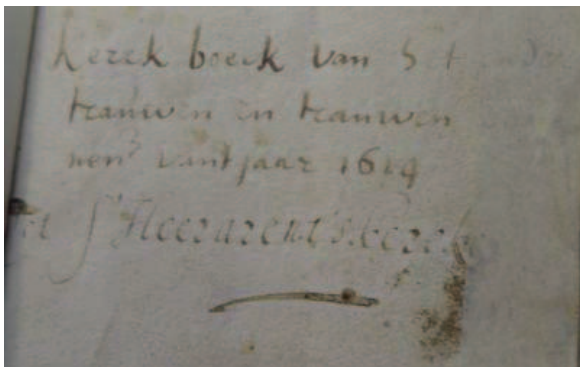 kerck boeck van
trauwen en trauwen
vant jaar 1619
S'Heerarentskercke